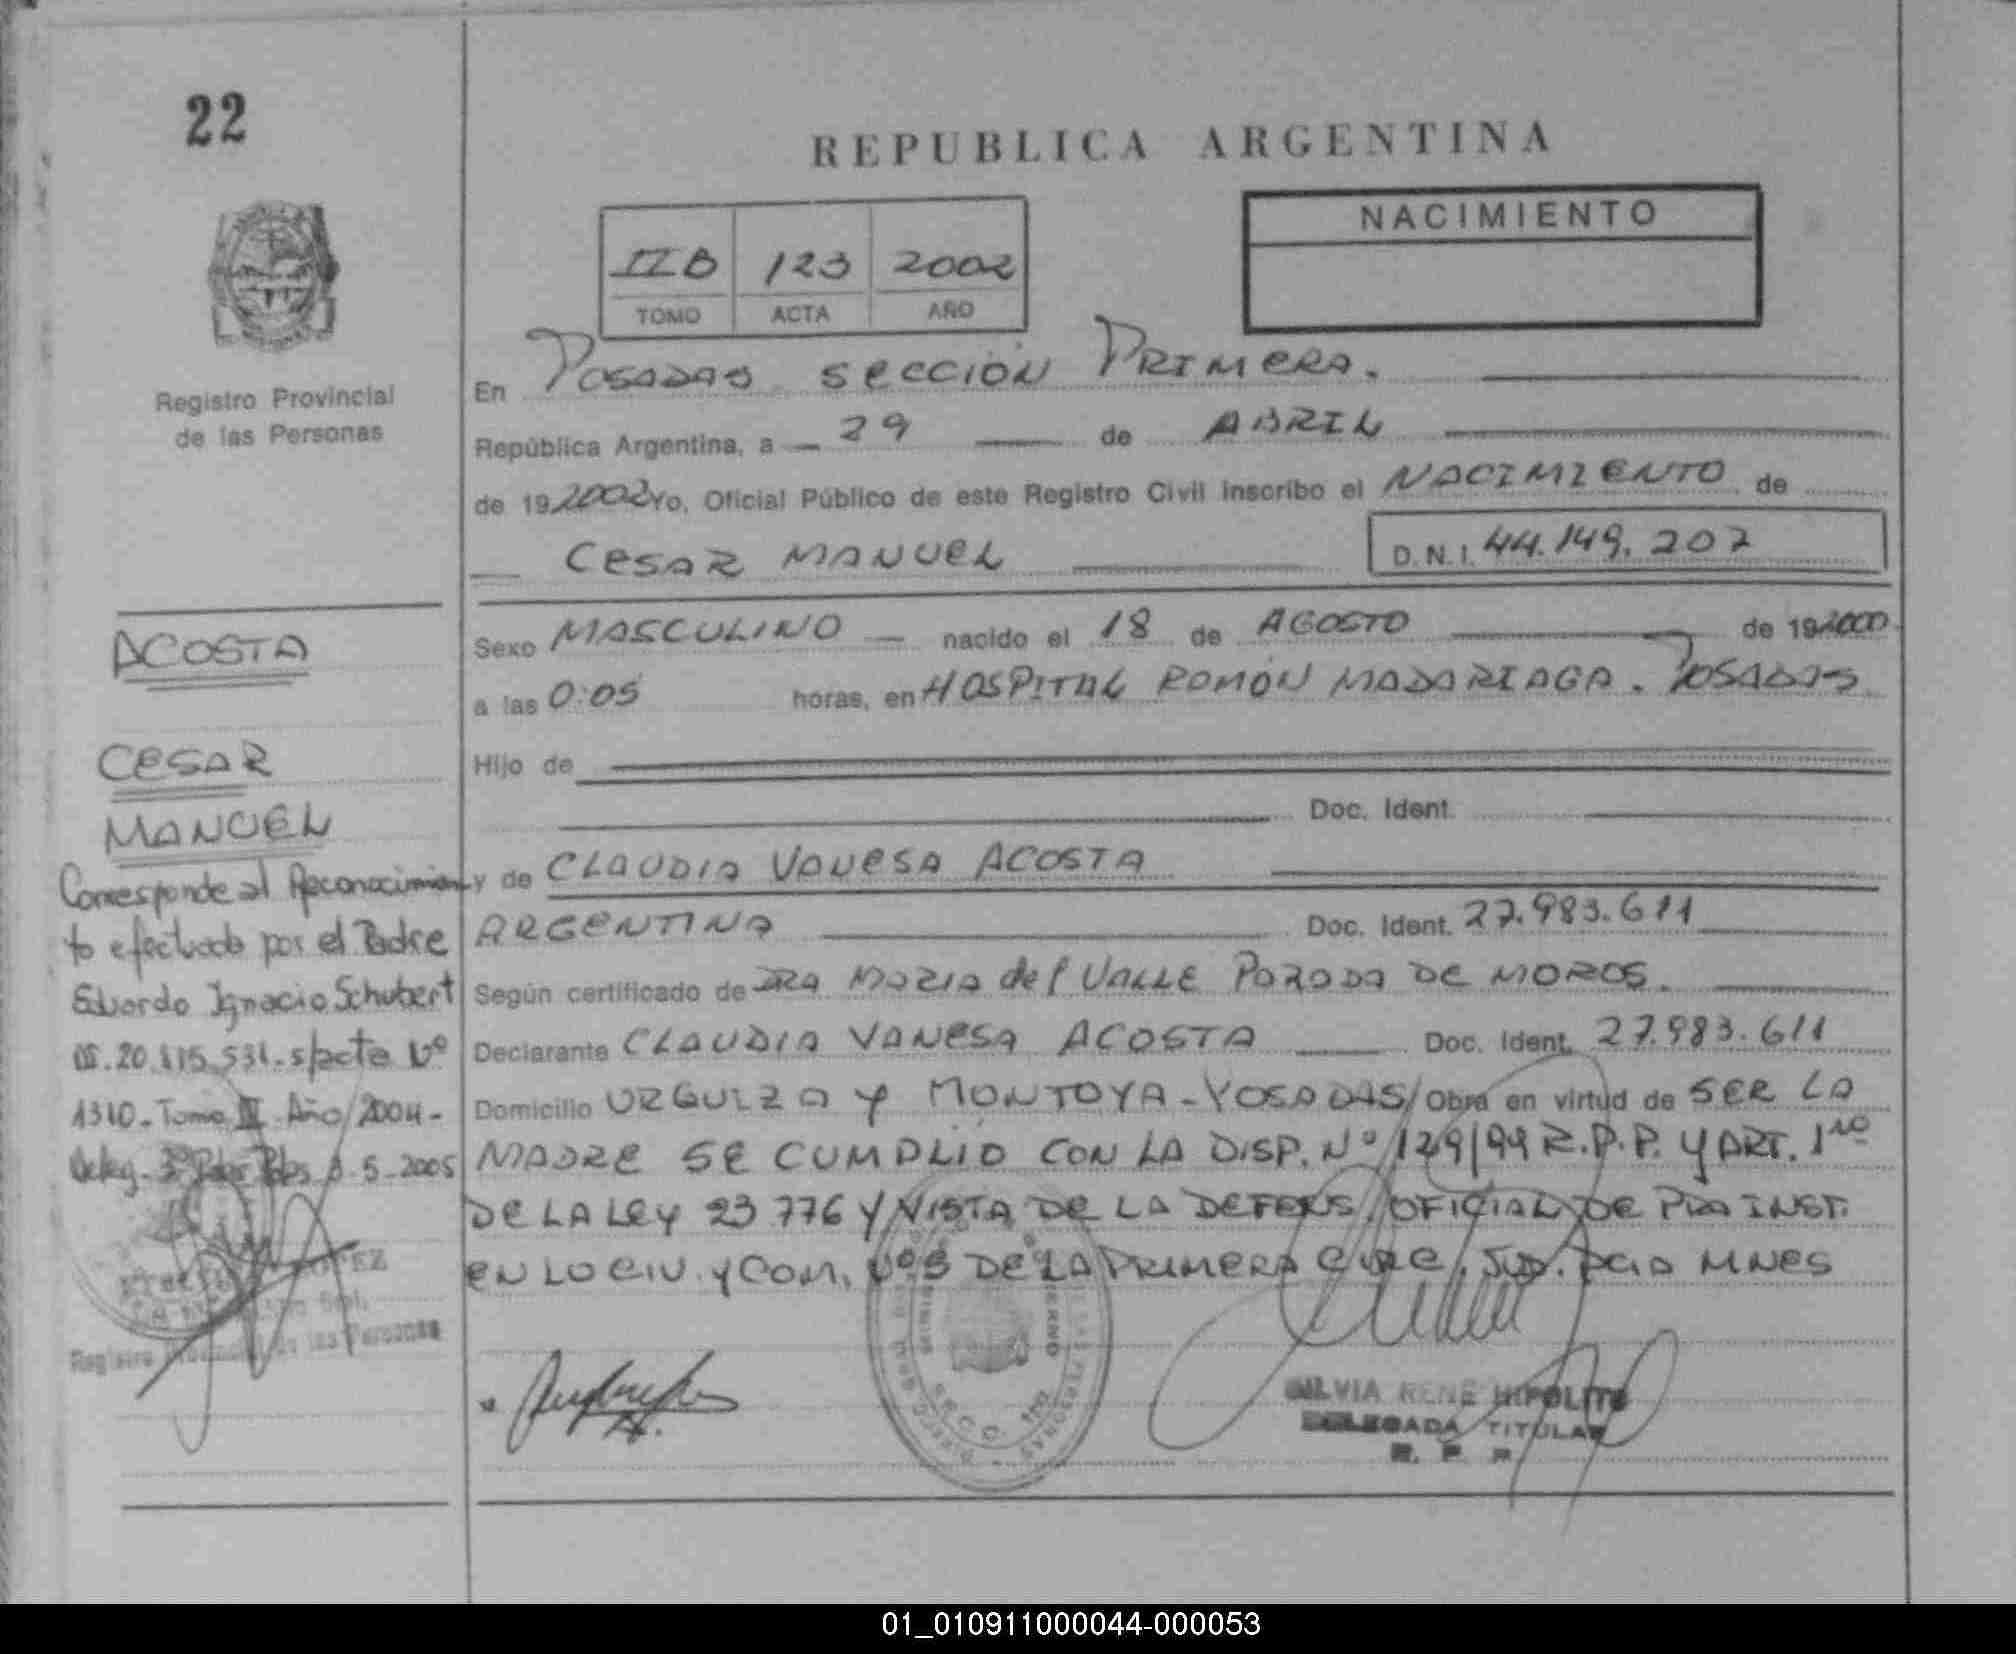 22
REPUBLICA ARGENTINA
IIB 123 2002
TOMO ACTA AÑO
NACIMIENTO
Registro Provincial
de las Personas
En POSADAS SECCIÓN PRIMERA.
República Argentina, a 29 de ABRIL
de 19 2002 Yo, Oficial Público de este Registro Civil inscribo el NACIMIENTO de
CESAR MANUEL D.N.I. 44.149.207
ACOSTA
CESAR
MANUEL
Sexo MASCULINO nacido el 18 de AGOSTO de 19 2000
a las 0:05 horas, en HOSPITAL RAMÓN MADARIAGA. POSADAS
Hijo de
Doc. Ident.
y de CLAUDIA VANESA ACOSTA
ARGENTINA Doc. Ident. 27.983.611
Según certificado de DRA MARIA del VALLE PARADA DE MOROS.
Declarante CLAUDIA VANESA ACOSTA Doc. Ident. 27.983.611
Domicilio URQUIZA Y MONTOYA - POSADAS/Obra en virtud de SER LA
MADRE SE CUMPLIO CON LA DISP. Nº 129/99 R.P.P. Y ART. 1RO
DE LA LEY 23776 Y VISTA DE LA DEFENS. OFICIAL DE INST.
EN LO CIV. Y COM. Nº DE LA PRIMERA CIRC. JUD. PCIA MNES
Corresponde al Reconocimien-
to efectuado por el Padre
Eduardo Ignacio Schubert
20.115.531. s/acta Nº
1310 - Tomo III Año 2004 -
3-5-2005
Registro Provincial de las Personas
SILVIA RENE HIPOLITO
DELEGADA TITULAR
R. P. P.
01_010911000044-000053